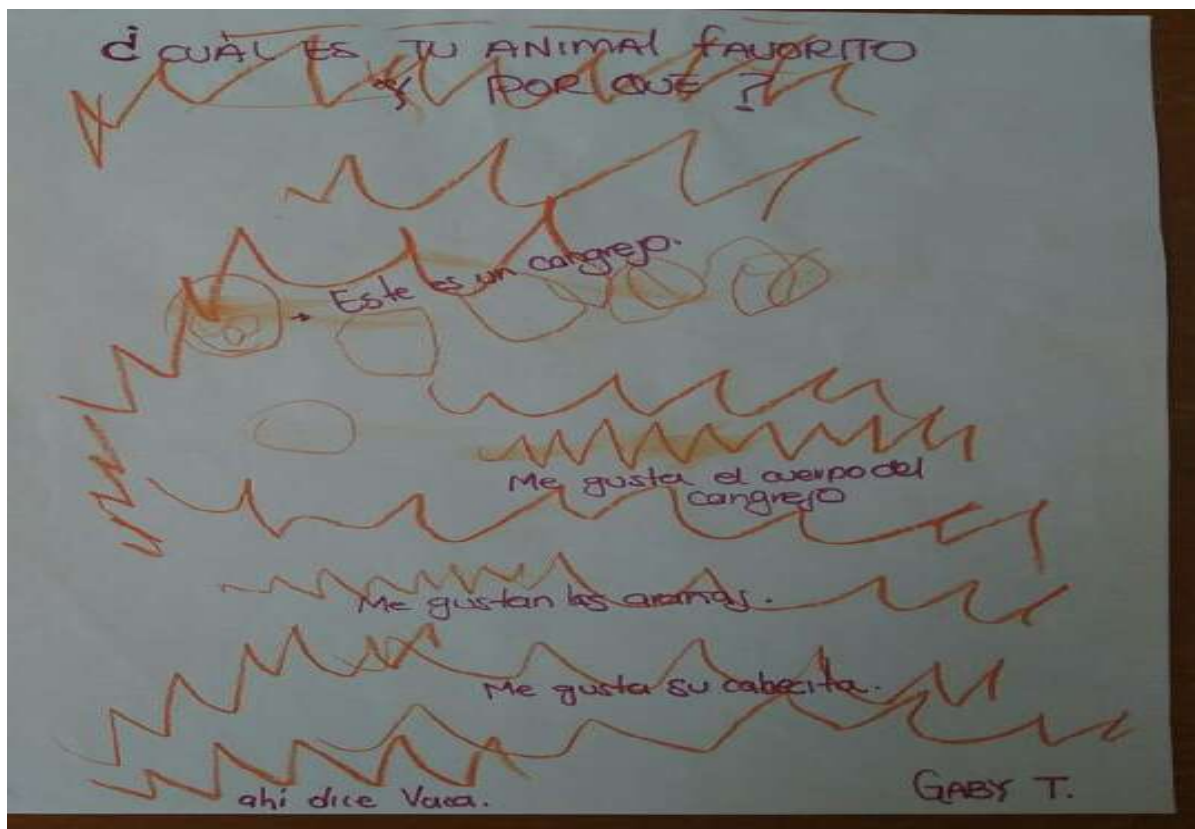 ¿CUÁL ES TU ANIMAL FAVORITO
Y POR QUE ?
Este es un cangrejo.
Me gusta el cuerpo del
cangrejo
Me gustan las arañas.
Me gusta su cabecita.
ahí dice Vaca.
GABY T.